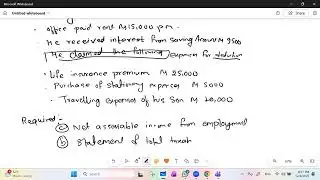 Microsoft Whiteboard
Untitled whiteboard
office paid rent M 15,000 pm.
He received interest from saving M 9500
He claimed the following expenses for deduction
Life insurance premium M 25,000
Purchase of stationary expenses M 5000
Travelling expenses of his Son M 20,000
Required:
a Net assessable income from employment
b Statement of total taxab
Search